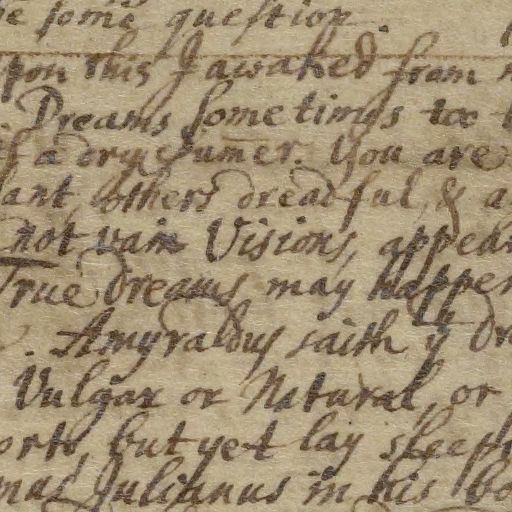 some question.
upon this I awaked from
Dreams sometimes too
of a dry sum̄er. You are
others dreadful, & a
not vain Visions, appear
True dreams may happen
. Amyraldus saith yͭ
Vulgar or Natural, or
but yet lay
Julianus in his